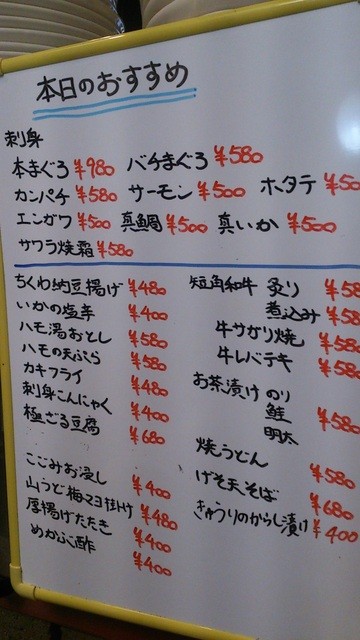 本日のおすすめ
刺身
本まぐろ ¥980 バチまぐろ ¥580
カンパチ ¥580 サーモン ¥500 ホタテ ¥50
エンガワ ¥500 真鯛 ¥500 真いか ¥500
サワラ焼霜 ¥580
ちくわ納豆揚げ ¥480
いかの塩辛 ¥400
ハモ湯おとし ¥580
ハモの天ぷら ¥580
カキフライ ¥480
刺身こんにゃく ¥400
極ざる豆腐 ¥680
こごみお浸し ¥400
山うど梅マヨ掛け ¥480
厚揚げたたき ¥400
めかぶ酢 ¥400
短角和牛 炙り ¥58
煮込み ¥58
牛サガリ焼 ¥580
牛レバテキ ¥58
お茶漬け のり
鮭 ¥580
明太
焼うどん ¥580
げそ天そば ¥680
きゅうりのからし漬け ¥400